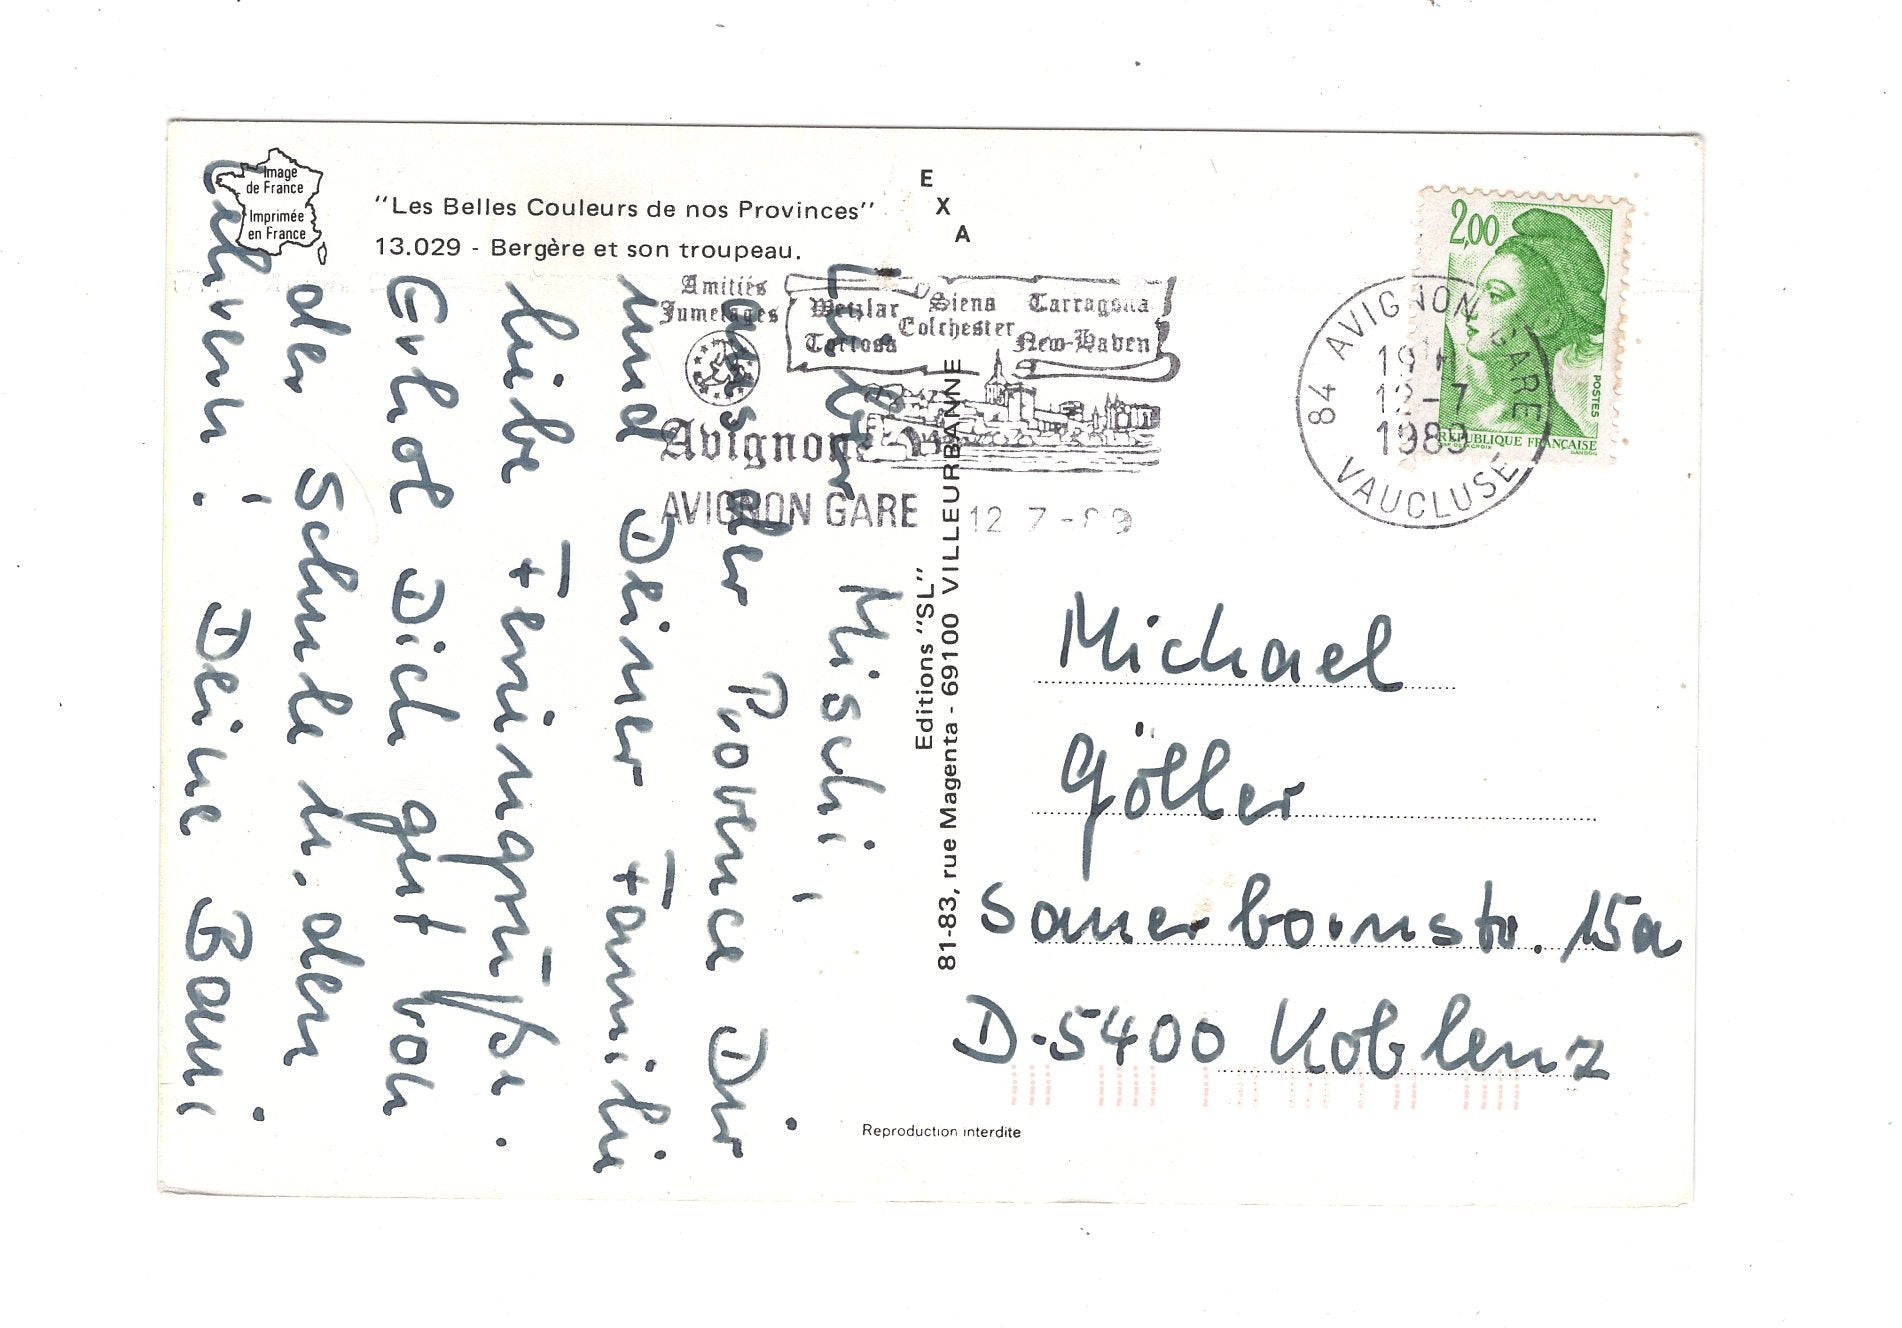 Image
de France
Imprimée
en France
"Les Belles Couleurs de nos Provinces"
13.029 - Bergère et son troupeau.
E
X
A
Amitiés
Jumelages
Wetzlar Siena Tarragona
Colchester
Tortosa New-Haven
Avignon
AVIGNON GARE 12 7 -89
2,00
POSTES
RÉPUBLIQUE FRANÇAISE
GANDON
84 AVIGNON GARE
19H
12-7
1989
VAUCLUSE
Lieber Mischi,
aus der Provence Dir
und Deiner Familie
liebe Feriengrüße.
Erhol Dich gut von
der Schule u. den
Lehrern! Deine Bami
Editions "SL"
81-83, rue Magenta - 69100 VILLEURBANNE
Michael
Göller
Sauerbornstr. 15a
D-5400 Koblenz
Reproduction interdite